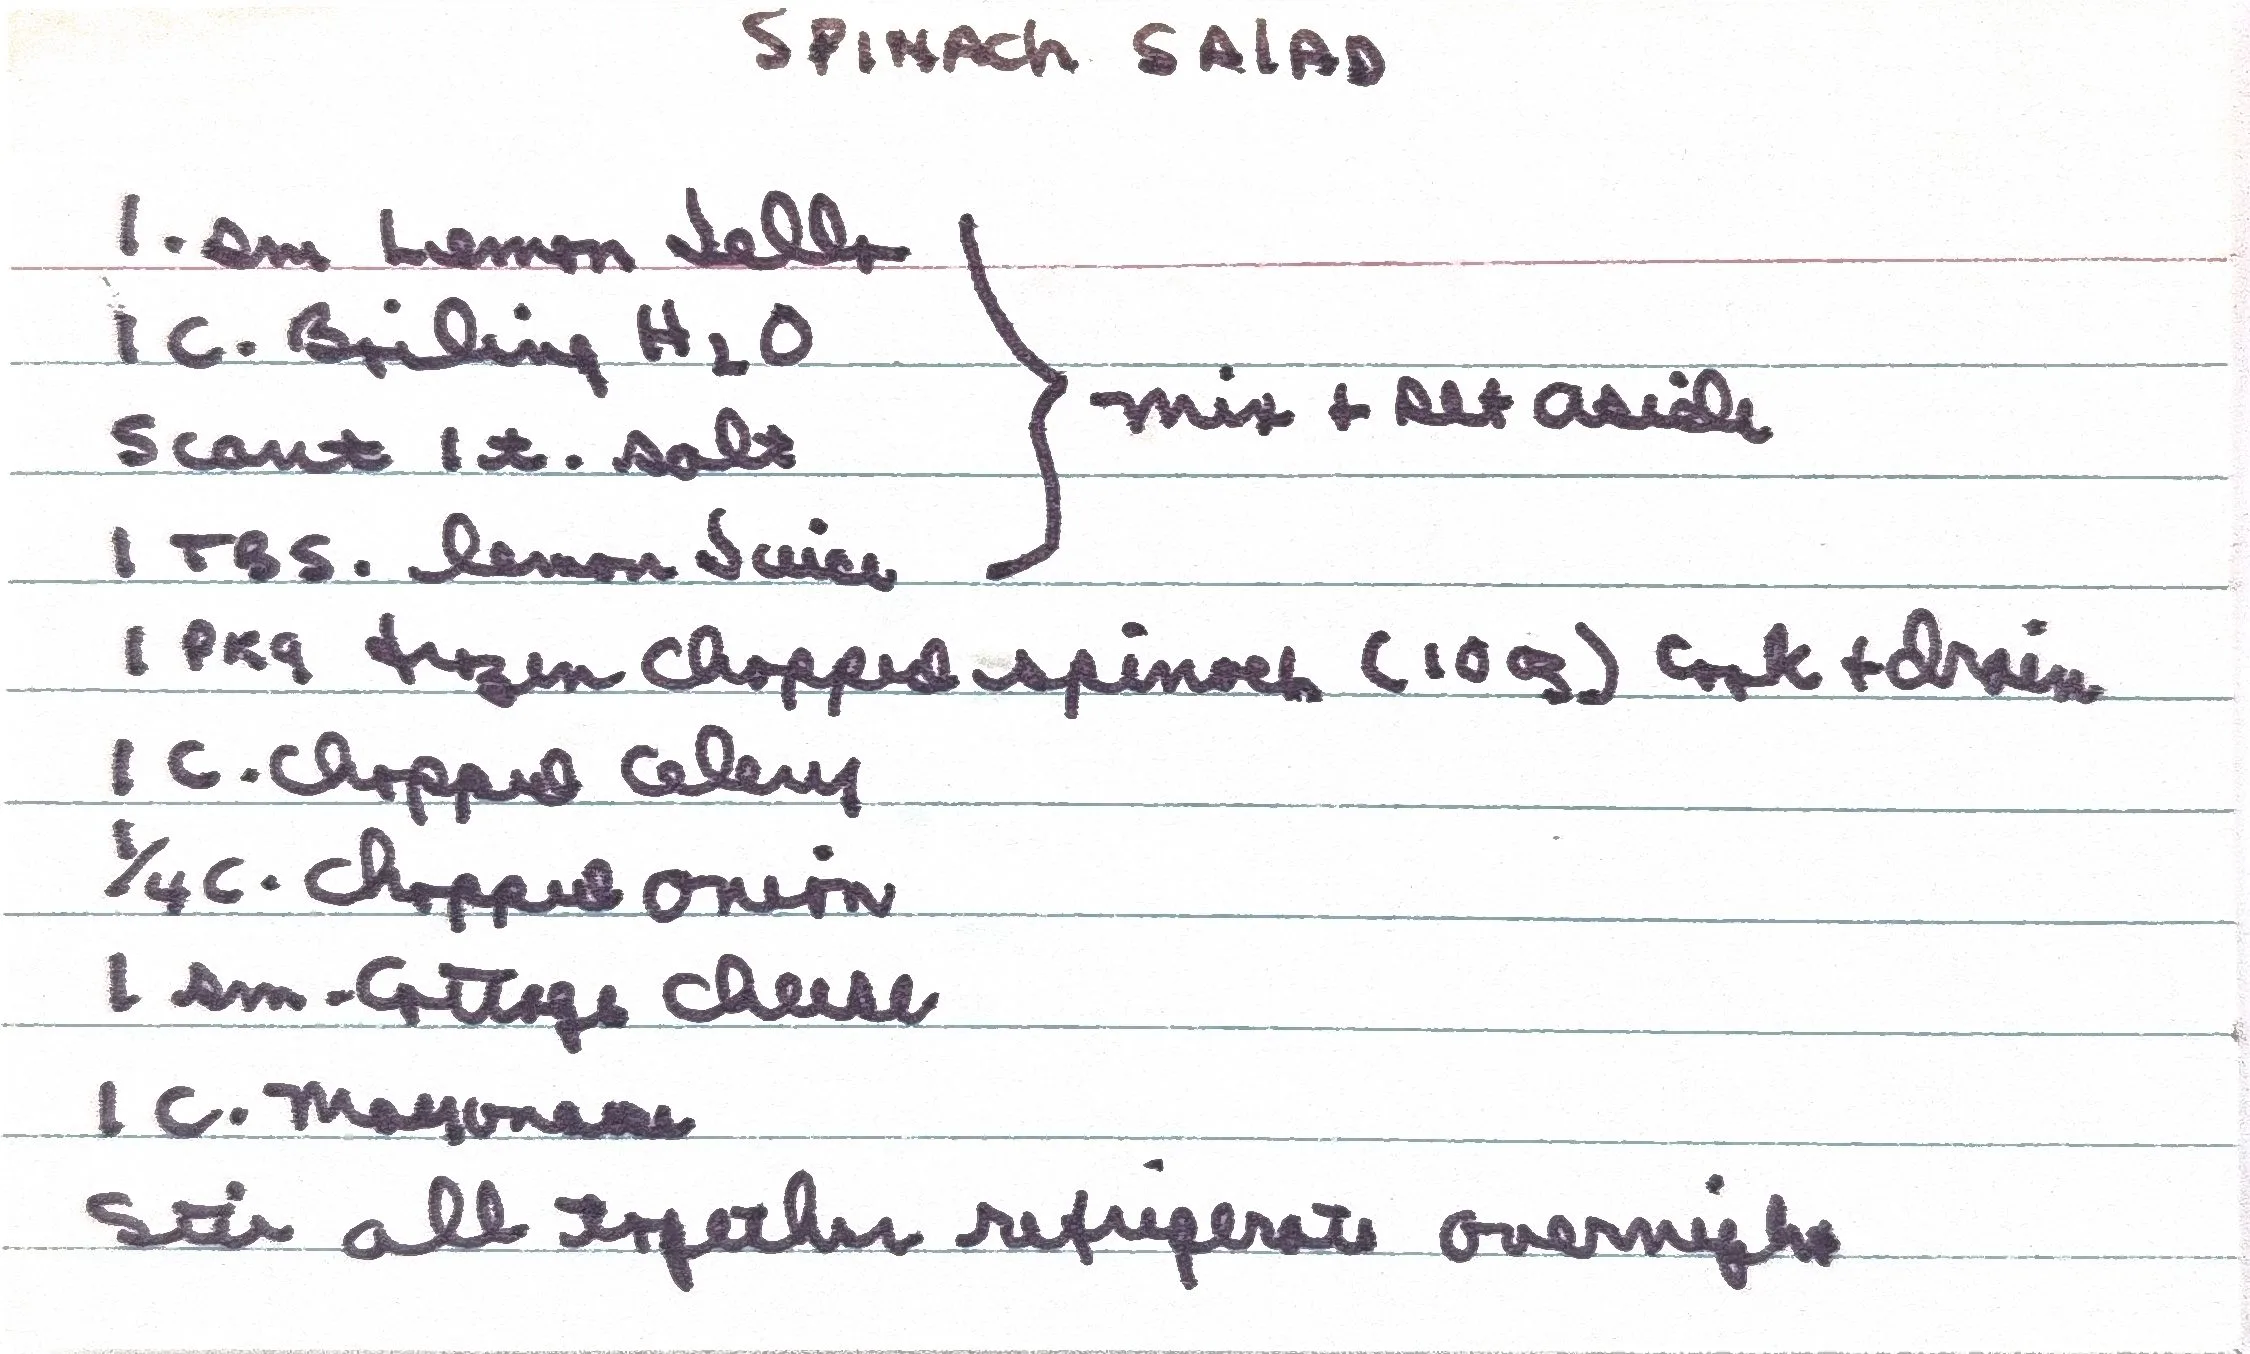 SPINACH SALAD
1. sm Lemon Jello
1 C. Boiling H2O
Scant 1 t. salt
mix + set aside
1 TBS. lemon Juice
1 PKg frozen chopped spinach (10 oz) Cook + drain
1 C. chopped Celery
1/4 C. chopped onion
1 sm. Cottage cheese
1 C. Mayonease
Stir all together refrigerate overnight